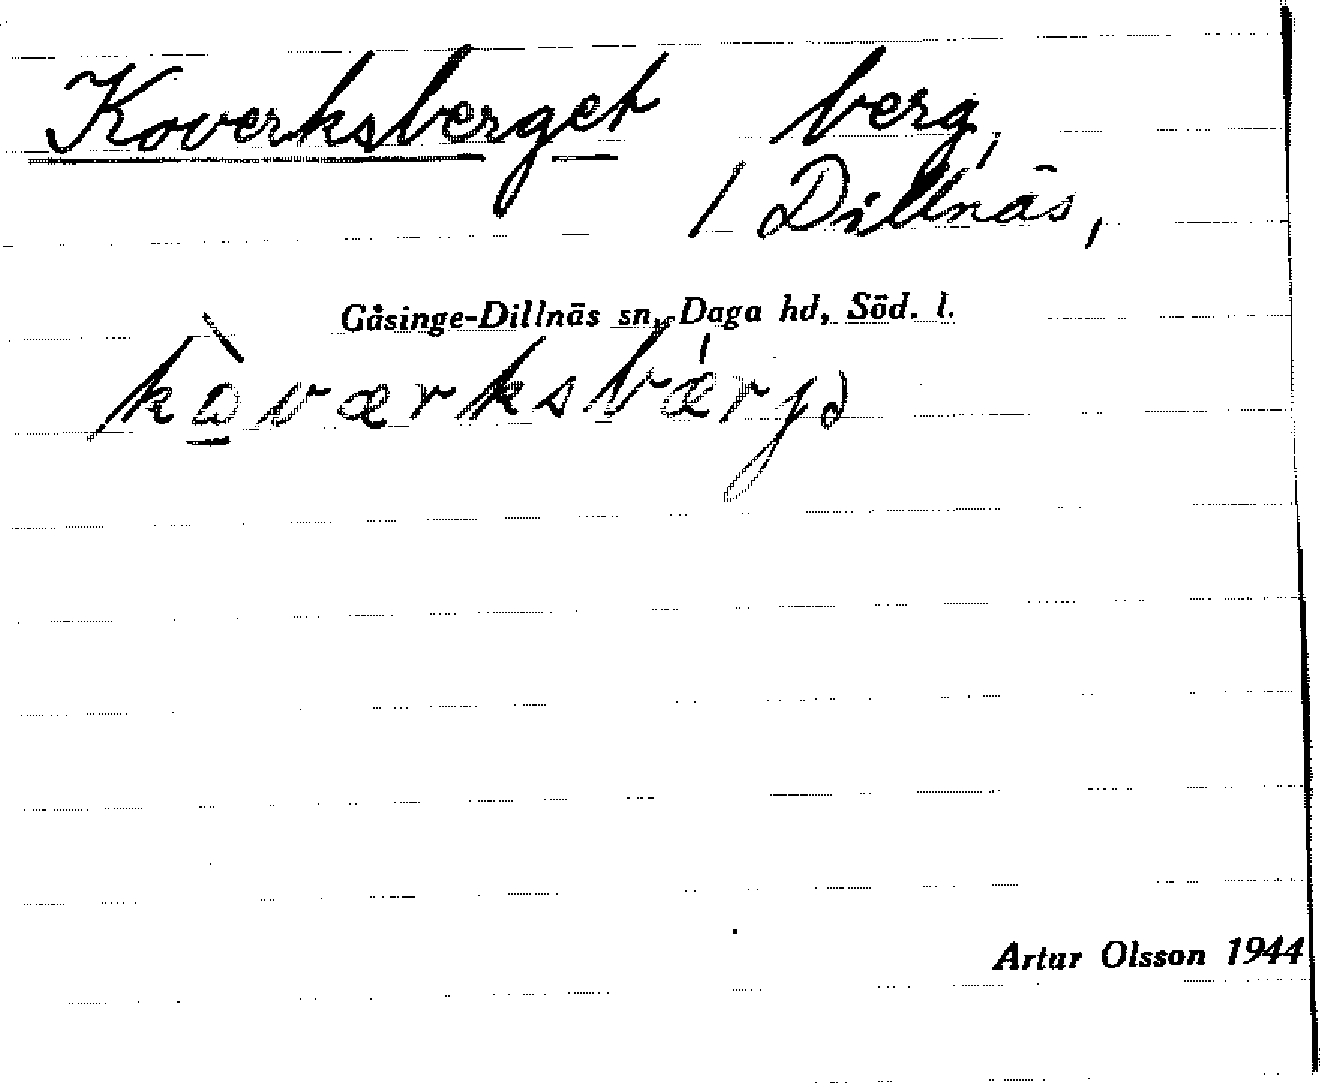 Koverksberget berg,
/ Dillnäs,
Gåsinge-Dillnäs sn, Daga hd, Söd. l.
kòværksbǽrjə
Artur Olsson 1944